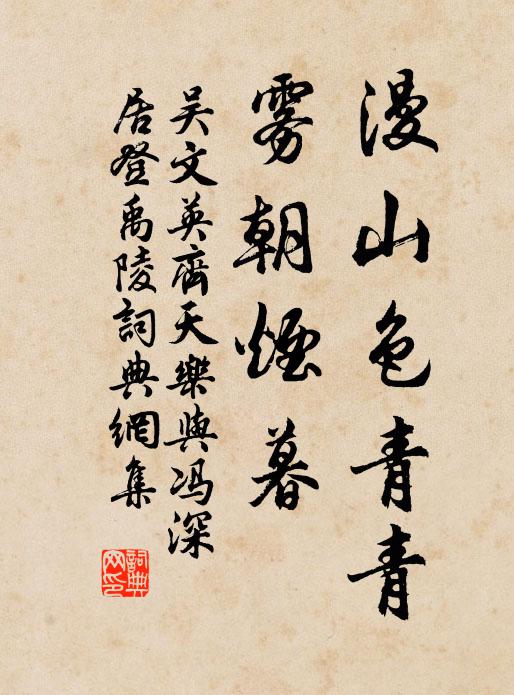 漫山色青青
雾朝煙暮
吴文英齊天樂與冯深
居登禹陵詞典網集
詞典
网印